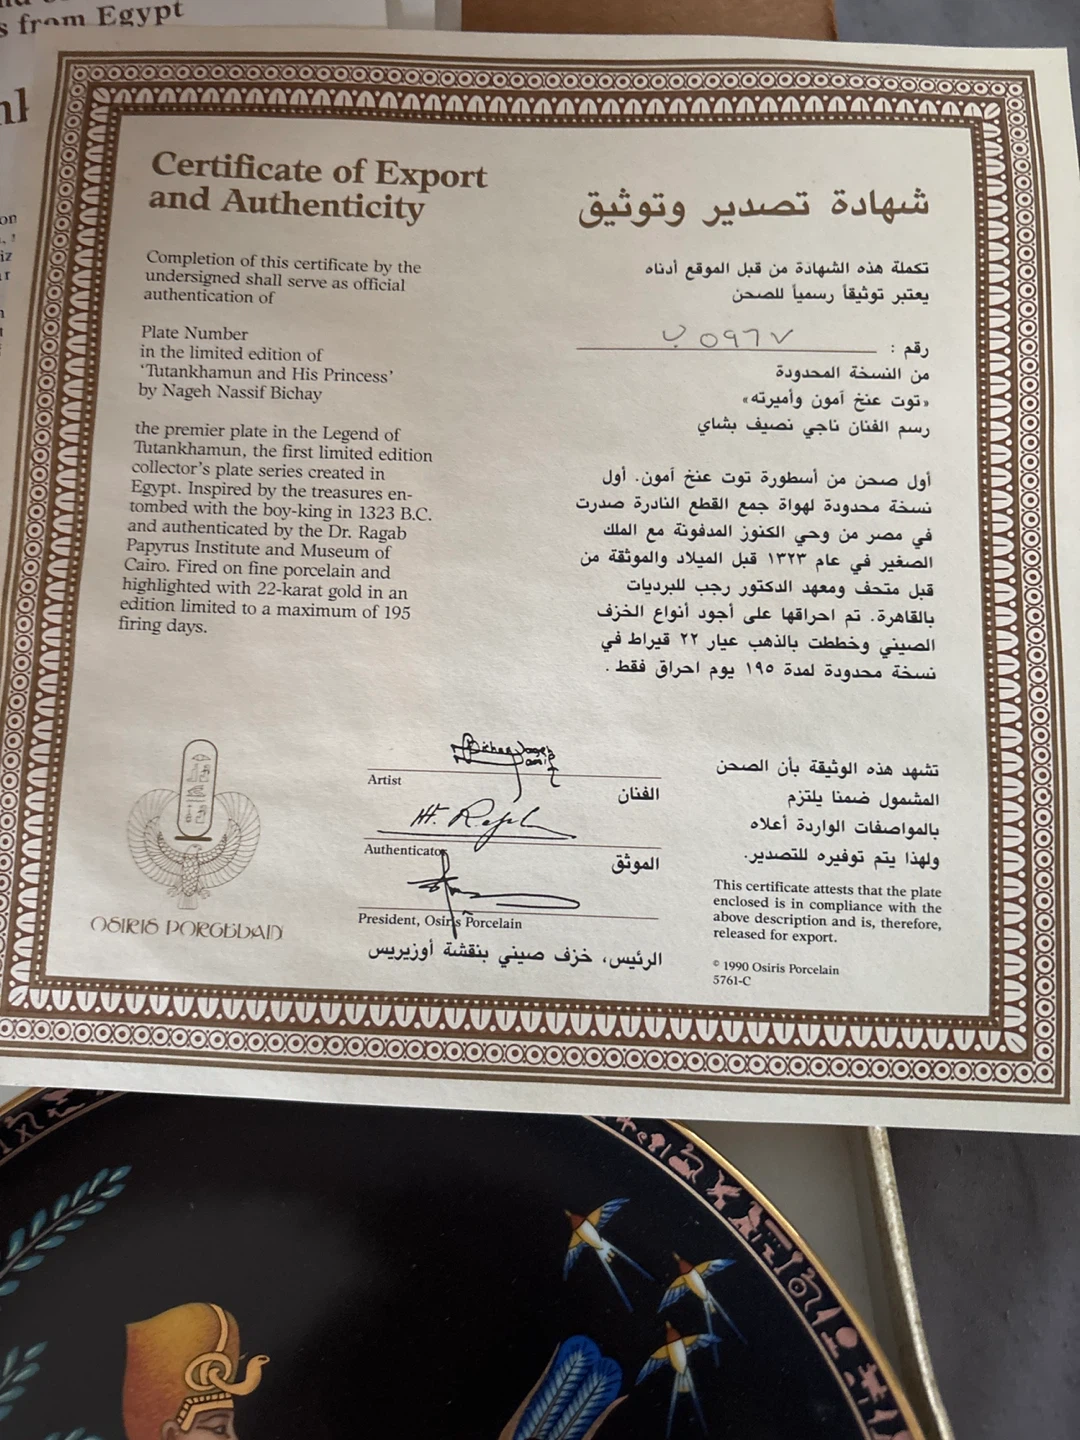 s from Egypt
Certificate of Export
and Authenticity
Completion of this certificate by the
undersigned shall serve as official
authentication of
Plate Number
in the limited edition of
‘Tutankhamun and His Princess’
by Nageh Nassif Bichay
the premier plate in the Legend of
Tutankhamun, the first limited edition
collector’s plate series created in
Egypt. Inspired by the treasures en-
tombed with the boy-king in 1323 B.C.
and authenticated by the Dr. Ragab
Papyrus Institute and Museum of
Cairo. Fired on fine porcelain and
highlighted with 22-karat gold in an
edition limited to a maximum of 195
firing days.
شهادة تصدير وتوثيق
تكملة هذه الشهادة من قبل الموقع أدناه
يعتبر توثيقاً رسمياً للصحن
رقم :
من النسخة المحدودة
«توت عنخ آمون وأميرته»
رسم الفنان ناجي نصيف بشاي
أول صحن من أسطورة توت عنخ آمون. أول
نسخة محدودة لهواة جمع القطع النادرة صدرت
في مصر من وحي الكنوز المدفونة مع الملك
الصغير في عام ١٣٢٣ قبل الميلاد والموثقة من
قبل متحف ومعهد الدكتور رجب للبرديات
بالقاهرة. تم احراقها على أجود أنواع الخزف
الصيني وخططت بالذهب عيار ٢٢ قيراط في
نسخة محدودة لمدة ١٩٥ يوم احراق فقط .
OSIRIS PORCELAIN
Artist
الفنان
Authenticator
الموثق
President, Osiris Porcelain
الرئيس، خزف صيني بنقشة أوزيريس
تشهد هذه الوثيقة بأن الصحن
المشمول ضمنا يلتزم
بالمواصفات الواردة أعلاه
ولهذا يتم توفيره للتصدير.
This certificate attests that the plate
enclosed is in compliance with the
above description and is, therefore,
released for export.
© 1990 Osiris Porcelain
5761-C